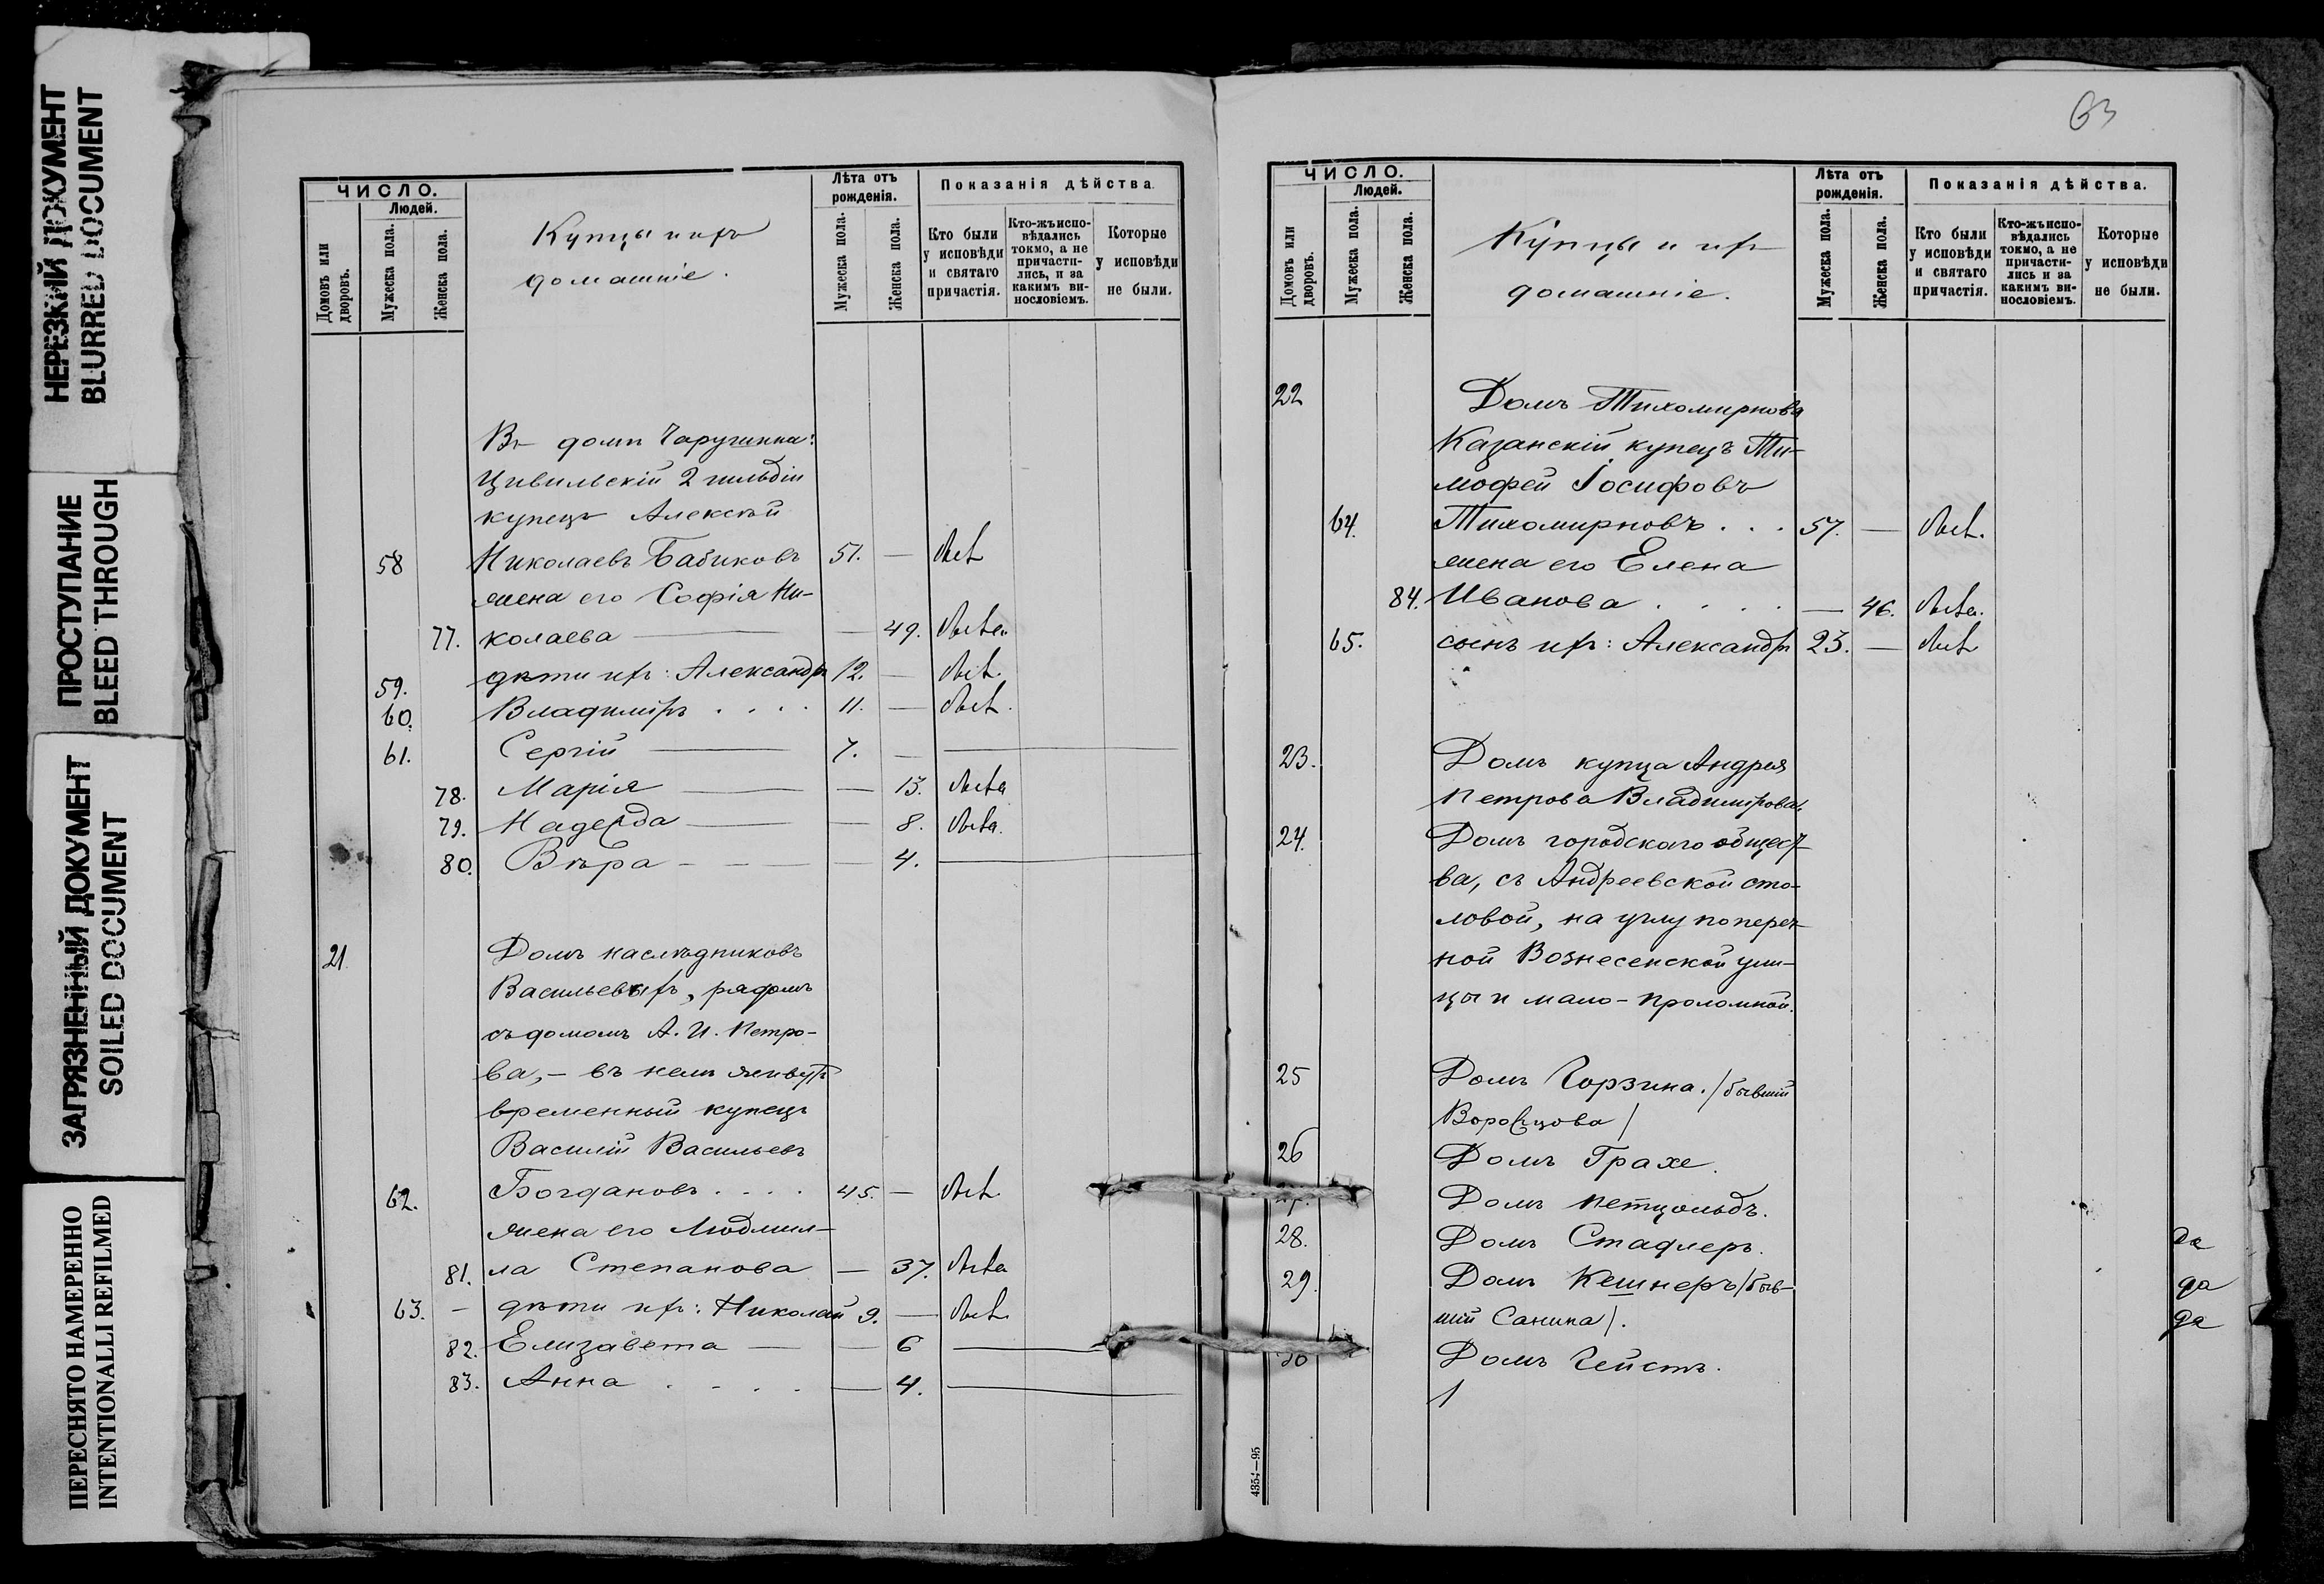 НЕРЕЗКИЙ ДОКУМЕНТ
BLURRED DOCUMENT
ПРОСТУПАНИЕ
BLEED THROUGH
ЗАГРЯЗНЕННЫЙ ДОКУМЕНТ
SOILED DOCUMENT
ПЕРЕСНЯТО НАМЕРЕННО
INTENTIONALLI REFILMED
ЧИСЛО.
Людей.
Домовъ или дворовъ.
Мужеска пола.
Женска пола.
Купцы и ихъ
домашніе.
Лѣта отъ
рожденія.
Мужеска пола.
Женска пола.
Показанія дѣйства.
Кто были
у исповѣди
и святаго
причастія.
Кто-жъ испо-
вѣдались
токмо, а не
причасти-
лись, и за
какимъ ви-
нословіемъ.
Которые
у исповѣди
не были.
Въ домѣ Чаругинна:
Цивильскій 2 гильдіи
купецъ Алексѣй
58 Николаевъ Бабиковъ 51. — былъ
жена его Софія Ни-
77. колаева — — 49. была
59. дѣти ихъ: Александръ 12. — былъ.
60. Владиміръ . . . . 11. — былъ.
61. Сергій — 7. — —
78. Марія — — 13. была
79. Надежда — — 8. была.
80. Вѣра - — — — 4. —
21. Домъ наслѣдниковъ
Васильевыхъ, рядомъ
съ домомъ А. И. Петро-
ва, – въ немъ живутъ
временный купецъ
Василій Васильевъ
62. Богдановъ . . . . 45. — былъ
жена его Людми-
81. ла Степанова — 37. была
63. – дѣти ихъ: Николай 9. — былъ
82. Елизавета — — 6 —
83. Анна . . . . — 4. —
63
ЧИСЛО.
Людей.
Домовъ или дворовъ.
Мужеска пола.
Женска пола.
Купцы и ихъ
домашніе.
Лѣта отъ
рожденія.
Мужеска пола.
Женска пола.
Показанія дѣйства.
Кто были
у исповѣди
и святаго
причастія.
Кто-жъ испо-
вѣдались
токмо, а не
причасти-
лись и за
какимъ ви-
нословіемъ.
Которые
у исповѣди
не были.
22 Домъ Тихомирнова
Казанскій купецъ Ти-
мофей Іосифовъ
64. Тихомирновъ . . . 57. — былъ.
жена его Елена
84. Иванова . . . . — 46. была.
65. сынъ ихъ: Александръ 23. — былъ
23. Домъ купца Андрея
Петрова Владимірова.
24. Домъ городского общест-
ва, съ Андреевской сто-
ловой, на углу попереч-
ной Вознесенской ули-
цы и мало-проломной.
25 Домъ Горзина. /бывшій
26 Домъ Грахе.
Домъ Петцольдъ.
28. Домъ Стадлеръ. да
29. Домъ Кешнеръ /быв- да
шій Санина/. да
Домъ Гейстъ.
4354—95